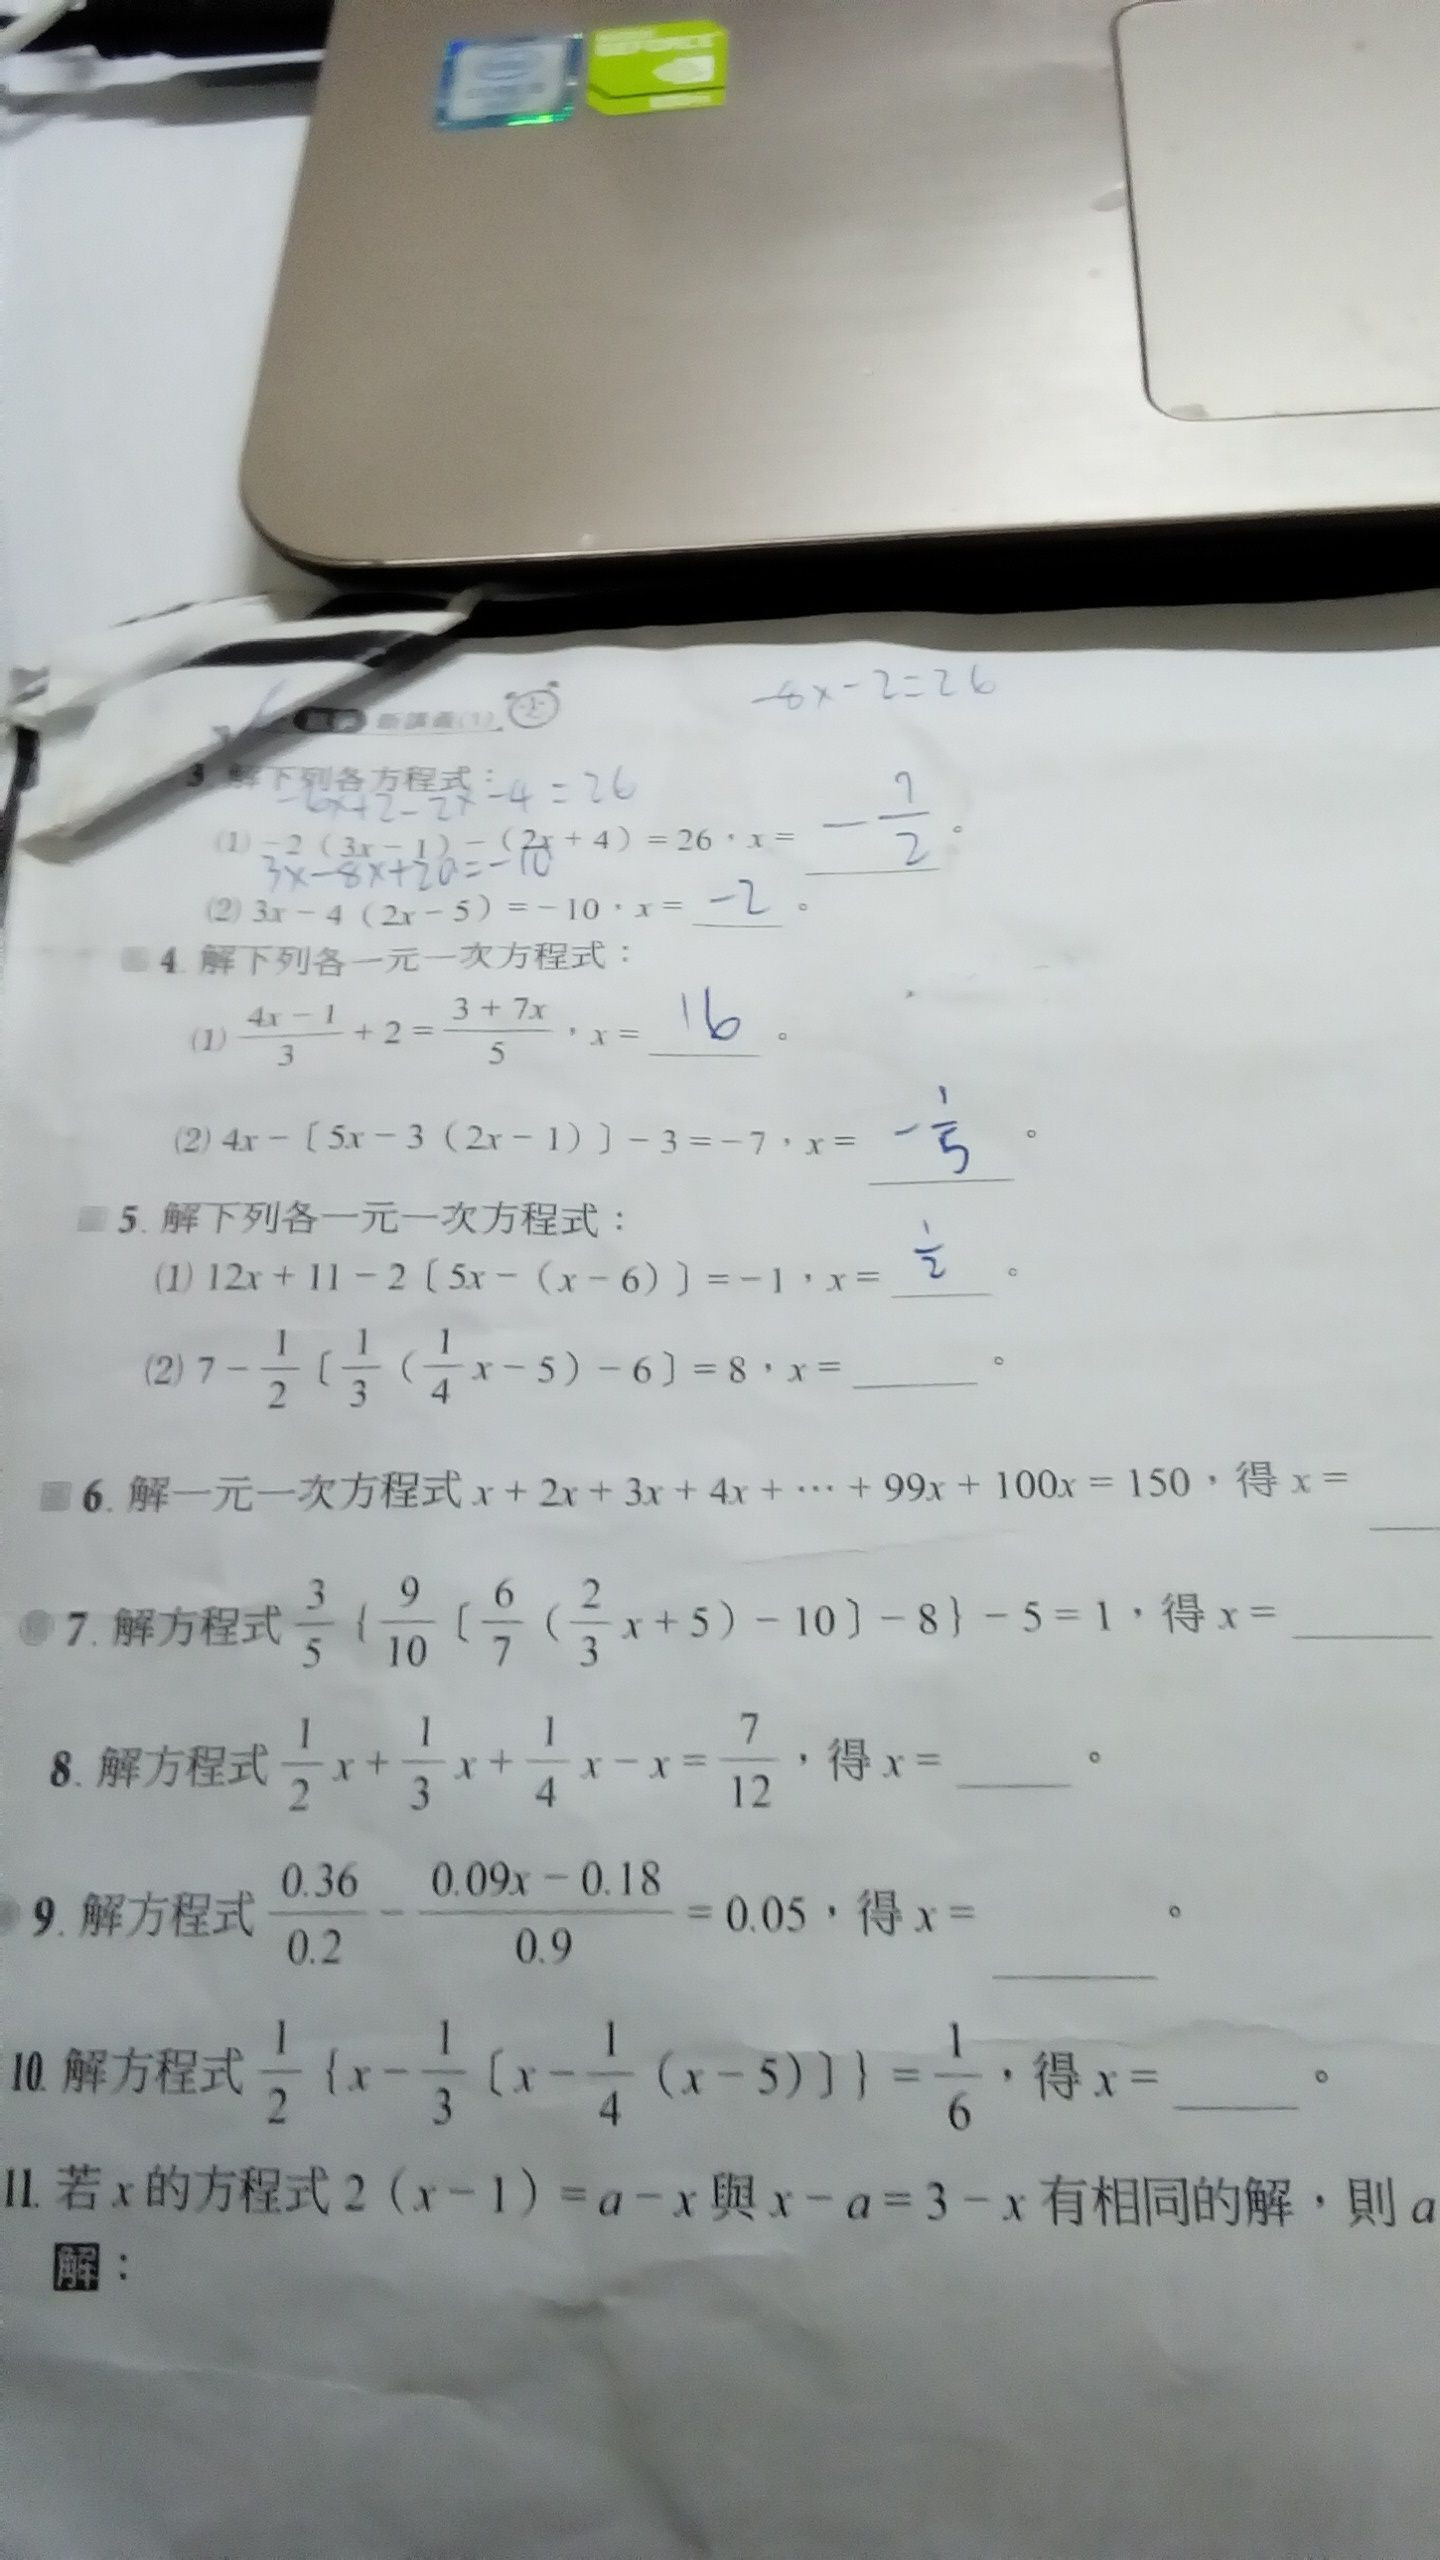 -8x-2=26
新講義(1)
3. 解下列各方程式：
-6x+2-2x-4=26
(1) -2（3x-1）-（2x+4）=26，x= -7/2 。
3x-8x+20=-10
(2) 3x-4（2x-5）=-10，x= -2 。
4. 解下列各一元一次方程式：
(1) (4x-1)/3 +2= (3+7x)/5，x= 16 。
(2) 4x-〔5x-3（2x-1）〕-3=-7，x= -1/5 。
5. 解下列各一元一次方程式：
(1) 12x+11-2〔5x-（x-6）〕=-1，x= 1/2 。
(2) 7- 1/2〔1/3（1/4 x-5）-6〕=8，x= ____ 。
6. 解一元一次方程式x+2x+3x+4x+…+99x+100x=150，得x=
7. 解方程式 3/5｛9/10〔6/7（2/3 x+5）-10〕-8｝-5=1，得x= ____
8. 解方程式 1/2 x+ 1/3 x+ 1/4 x-x= 7/12，得x= ____ 。
9. 解方程式 0.36/0.2 - (0.09x-0.18)/0.9 =0.05，得x= ____ 。
10. 解方程式 1/2｛x- 1/3〔x- 1/4（x-5）〕｝= 1/6，得x= ____ 。
11. 若x的方程式2（x-1）=a-x與x-a=3-x有相同的解，則a
解：